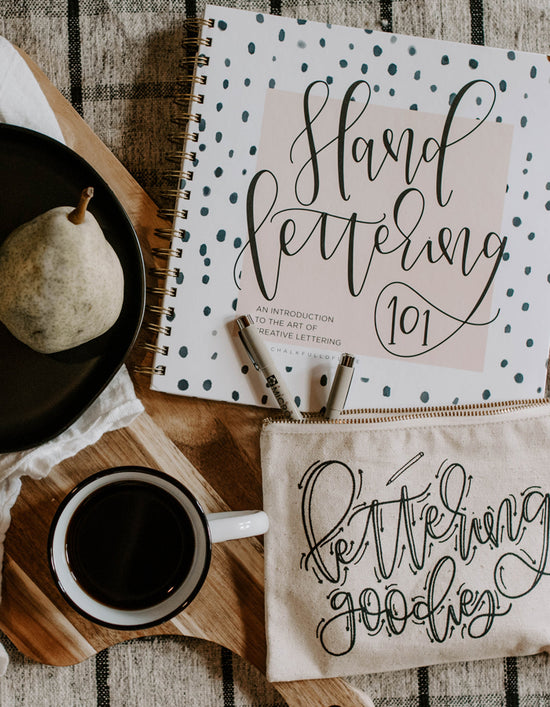 Hand
lettering
101
AN INTRODUCTION
TO THE ART OF
CREATIVE LETTERING
lettering
goodies